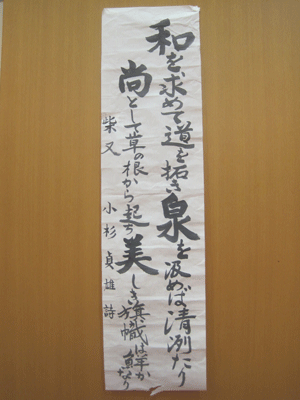 和を求めて道を拓き泉を汲めば清冽たり
尚として草の根から起ち美しき旗幟は鮮かなり
柴又 小杉貞雄詩